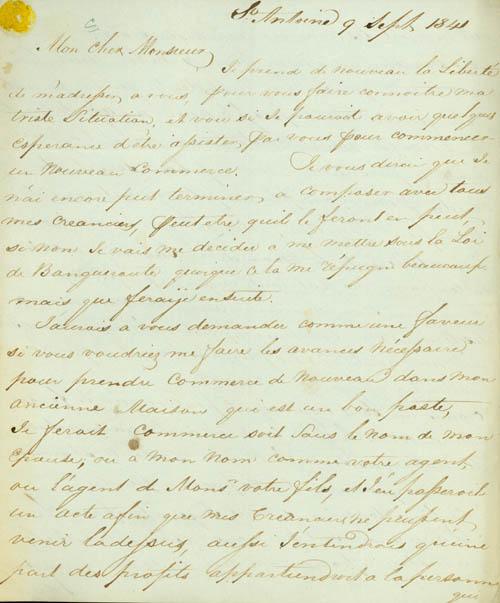 St Antoine 9 Sept 1841
Mon cher Monsieur
Je prend de nouveau la Liberté
de m'adresser a vous, pour vous faire connoitre ma
triste Situation, et voir si Je pourait avoir quelques
esperance d'être assister par vous pour commencer
un Nouveau Commerce. Je vous dirai que Je
n'ai encore put terminer a composer avec tous
mes creanciers, Peutetre qu'il le feront en peut,
si non Je vais me décider a me mettre sous la Loi
de Banqueroute quoique ce la me répugne beaucoup
mais que feraije ensuite.
J'aurais a vous demander comme une faveur
si vous voudriez me faire les avances nécessaire
pour prendre Commerce de Nouveau dans mon
ancienne Maison qui est un bon poste,
Je ferait commerce soit sous le nom de mon
epouse, ou a mon nom comme votre agent
ou l'agent de Monsr votre fils, et J'en passerois
un acte afin que mes Creanciers ne peussent
venir ladessus, aussi J'entendrois qu'une
part des profits appartiendroit a la personne
qui